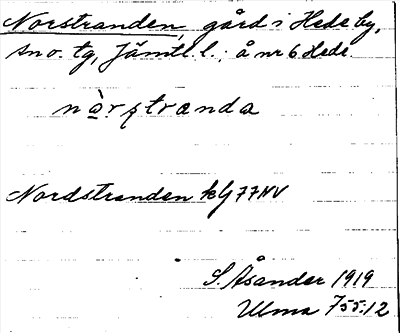 Norstranden, gård i Hede by,
sn o. tg, Jämtl. l.; å nr 6 Hede.
nò̱rʂtranda
Nordstranden kbl 77 NV
S. Åsander 1919
Ulma 755:12